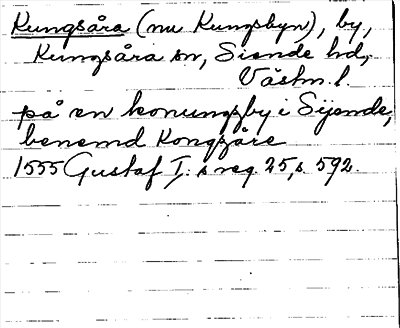 Kungsåra (nu Kungsbyn), by,
Kungsåra sn, Siende hd,
Västm. l.
på en konungsby i Sijende,
benemd Kongzåre
1555 Gustaf I:s reg. 25, s. 592.